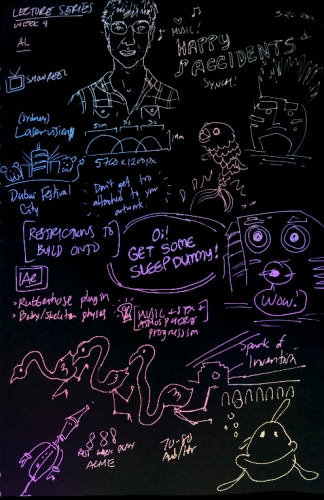 LECTURE SERIES
WEEK 4
MUSIC!
HAPPY
ACCIDENTS
SYNCH!
SHOWREEL
(Sydney)
Laservision
5760 x 1200px
Dubai Festival
City
Don't get too
attached to your
artwork.
RESTRICTIONS TO
BUILD ONTO
Oi!
GET SOME
SLEEP DUMMY!
Ae
WOW!
> Rubberhose plugin
> Baby/Skeleton physics
MUSIC + SFX +
ATMOSPHERE
progression
Spark of
Invention
ACME
70-80